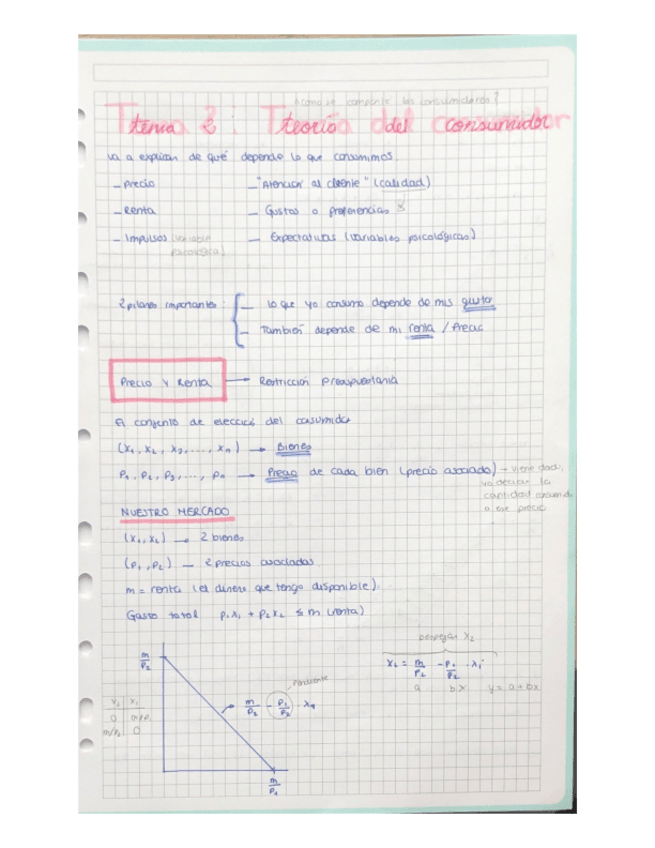 ¿Cómo se comporta los consumidores?
Tema 2: Teoría del consumidor
va a explicar de qué depende lo que consumimos.
- Precio - "Atención al cliente" (calidad)
- Renta - Gustos o preferencias
- Impulsos (variable psicológica) - Expectativas (variables psicológicas)
2 pilares importantes: - lo que yo consumo depende de mis gustos
- También depende de mi renta / Precio
Precio y Renta → Restricción Presupuestaria
El conjunto de elección del consumidor
(x1, x2, x3, ..., xn) → Bienes
P1, P2, P3, ..., Pn → Precio de cada bien (precio asociado) → viene dado,
yo decido la
cantidad
a ese precio
NUESTRO MERCADO
(x1, x2) → 2 bienes
(P1, P2) - 2 precios asociados
m = renta (el dinero que tengo disponible).
Gasto total P1x1 + P2x2 ≤ m (renta)
Despejar x2
x2 = m/P2 - P1/P2 · x1
a b·x y = a + bx
m/P2
Pendiente
m/P2 - P1/P2 · x1
x2 x1
0 m/P1
m/P2 0
m/P1